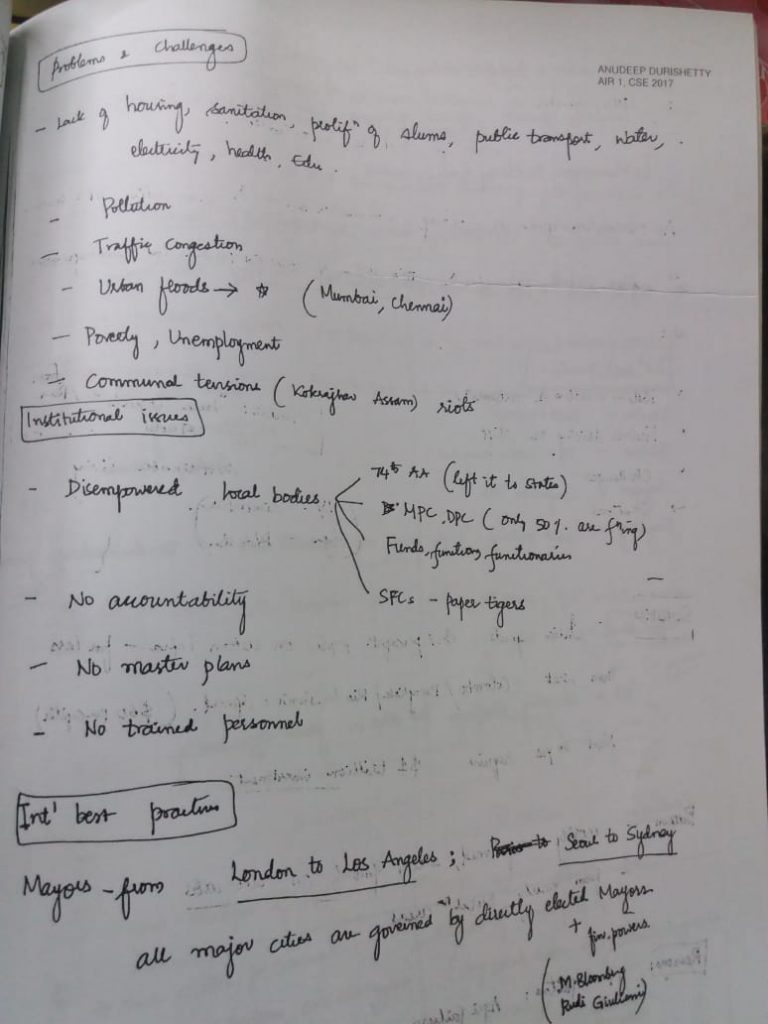 Problems & Challenges
ANUDEEP DURISHETTY
AIR 1, CSE 2017
- Lack of housing, sanitation, prolifn of slums, public transport, water,
electricity, health, Edu.
- Pollution
- Traffic Congestion
- Urban floods → ☆ (Mumbai, Chennai)
- Poverty, Unemployment
- Communal tensions (Kokrajhar Assam) riots
Institutional issues
- Disempowered local bodies
74th AA (left it to states)
MPC, DPC (only 50%. are f'ning)
Funds, functions, functionaries
SFCs - paper tigers
- No accountability
- No master plans
- No trained personnel
Int' best practices
Mayors - from London to Los Angeles; Seoul to Sydney
all major cities are governed by directly elected Mayors
+ fin. powers.
(M. Bloomberg
Rudi Giuliani)